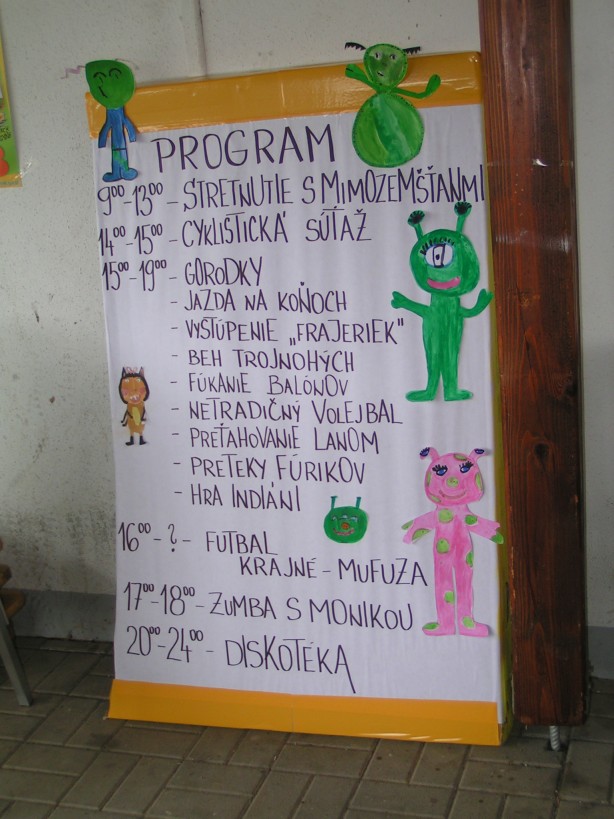 PROGRAM
9⁰⁰-13⁰⁰ - STRETNUTIE S MIMOZEMŠŤANMI
14⁰⁰-15⁰⁰ - CYKLISTICKÁ SÚŤAŽ
15⁰⁰-19⁰⁰ - GORODKY
- JAZDA NA KOŇOCH
- VYSTÚPENIE „FRAJERIEK“
- BEH TROJNOHÝCH
- FÚKANIE BALÓNOV
- NETRADIČNÝ VOLEJBAL
- PREŤAHOVANIE LANOM
- PRETEKY FÚRIKOV
- HRA INDIÁNI
16⁰⁰ - ? - FUTBAL
KRAJNÉ - MUFUZA
17⁰⁰-18⁰⁰ - ZUMBA S MONIKOU
20⁰⁰-24⁰⁰ - DISKOTÉKA